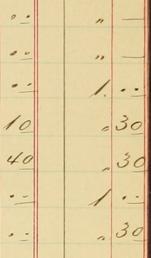 .. " —
.. " —
.. 1. ..
10 " 30
40 " 30
.. 1 ..
.. " 30